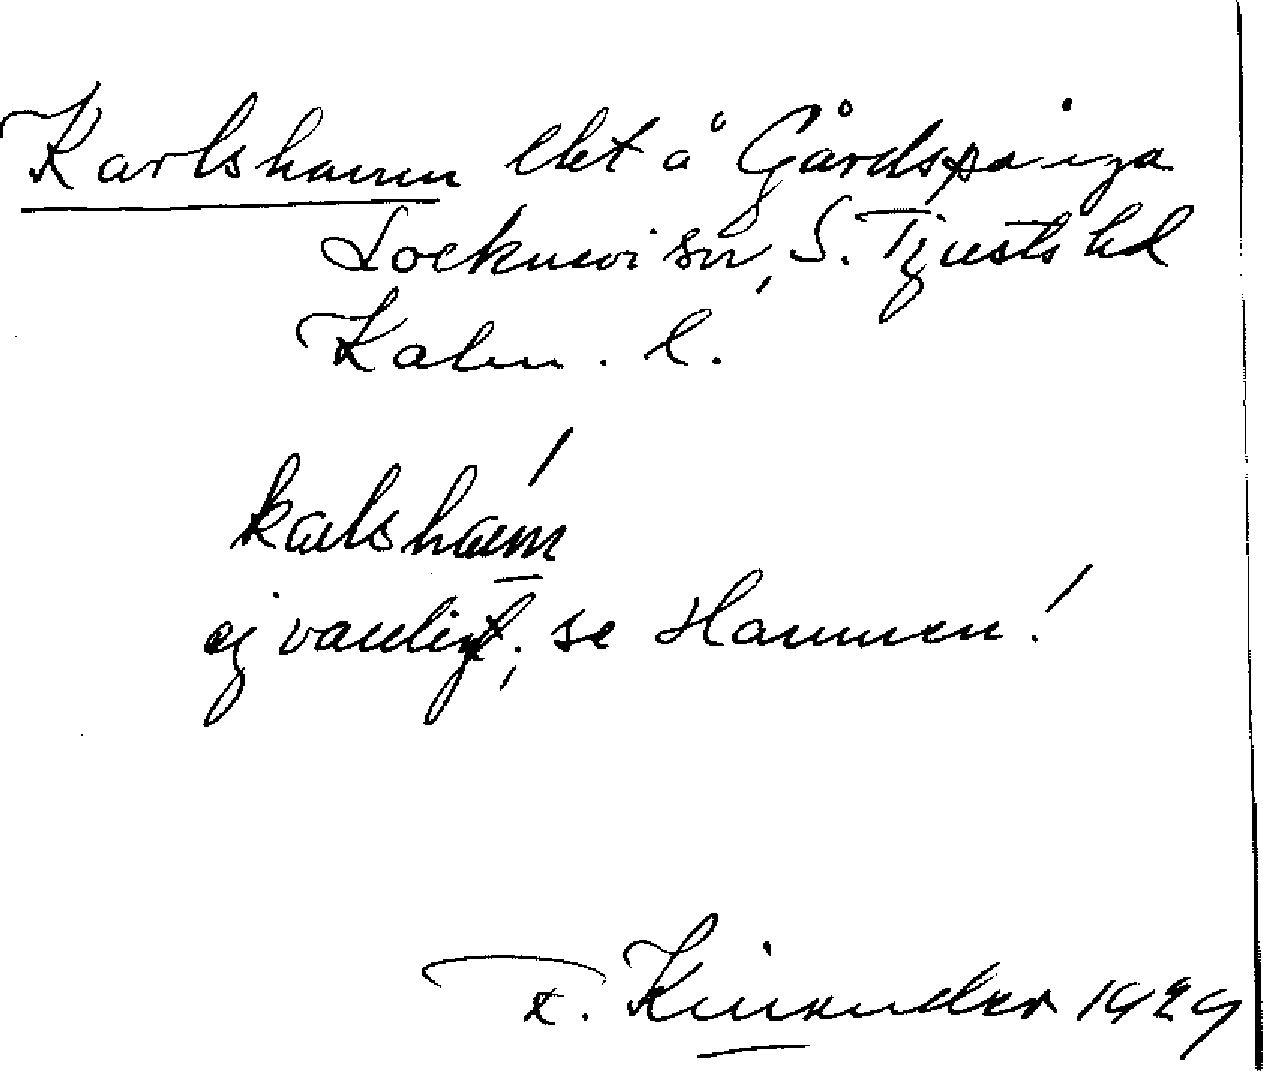 Karlshamn lht å Gårdspånga
Locknevi sn, S. Tjusts hd
Kalm. l.
kalshamn
ej vanligt, se Hamnen!
F. Kinander 1929